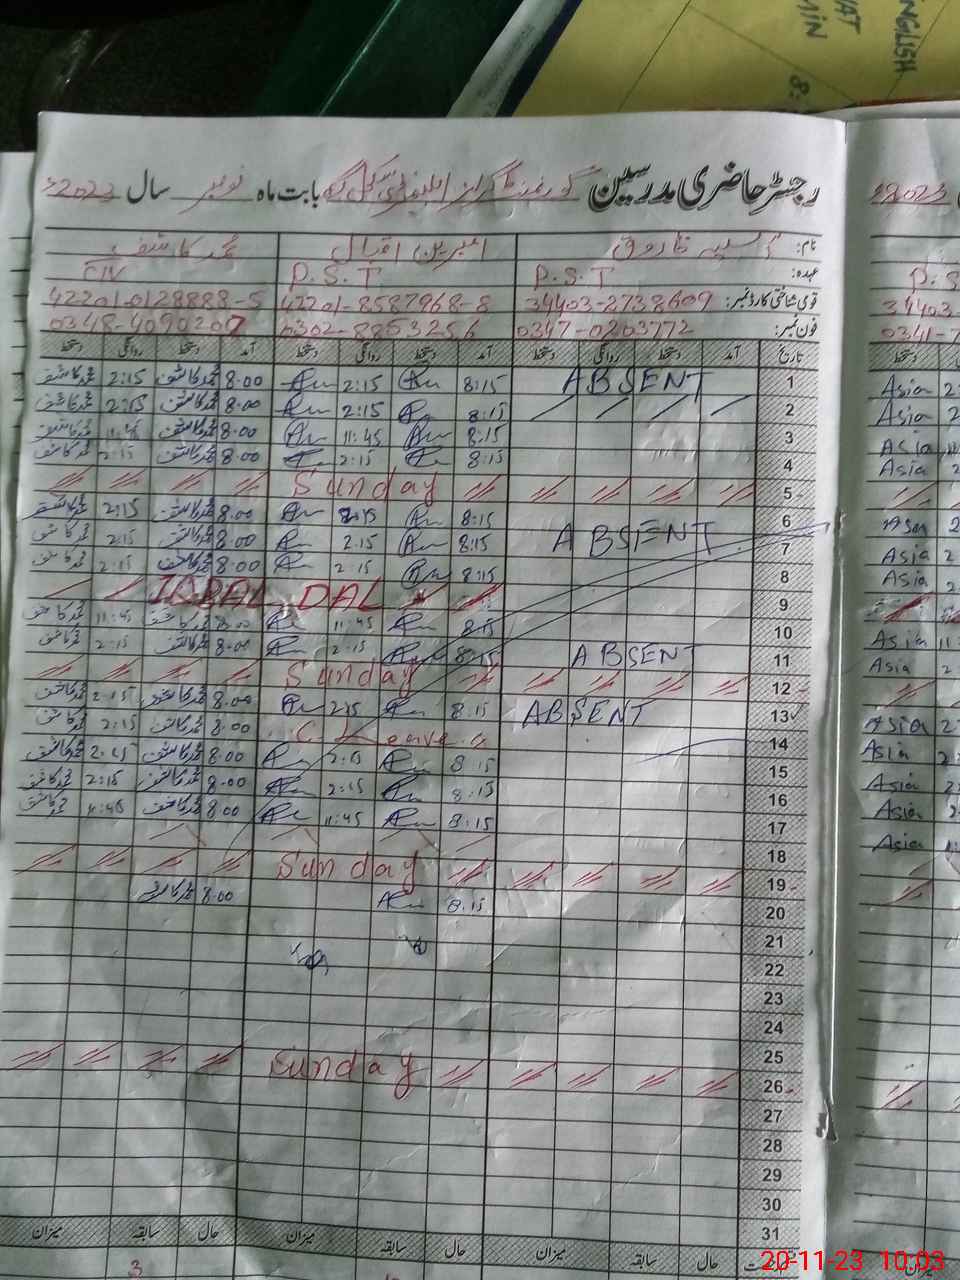 ENGLISH
MIN
8:
رجسٹر حاضری مدرسین گورنمنٹ گرلز بابت ماہ نومبر سال 2023ء
نام: فاروق امبرین اقبال محمد کاشف
عہدہ: P.S.T P.S.T
قومی شناختی کارڈ نمبر: 34403-2738609 42201-8587968-8 42201-0128888-5
فون نمبر: 0347-0203772 0302-8853256 0348-4090207
تاریخ آمد دستخط روانگی دستخط آمد دستخط روانگی دستخط آمد دستخط روانگی دستخط
1 ABSENT 8:15 2:15 8:00 محمد کاشف 2:15 محمد کاشف Asia
2 8:15 2:15 8:00 محمد کاشف 2:15 محمد کاشف Asia
3 8:15 11:45 8:00 محمد کاشف 11:45 محمد کاشف Asia
4 8:15 2:15 8:00 محمد کاشف 2:15 محمد کاشف Asia
5 Sunday
6 8:15 2:15 8:00 محمد کاشف 2:15 محمد کاشف Asia
7 ABSENT 8:15 2:15 8:00 محمد کاشف 2:15 محمد کاشف Asia
8 8:15 2:15 8:00 محمد کاشف 2:15 محمد کاشف Asia
9 IQBAL DAL
10 8:15 11:45 8:00 محمد کاشف 11:45 محمد کاشف Asia
11 ABSENT 8:15 2:15 8:00 محمد کاشف 2:15 محمد کاشف Asia
12 Sunday
13 ABSENT 8:15 2:15 8:00 محمد کاشف 2:15 محمد کاشف Asia
14 C. Leave 8:00 محمد کاشف 2:15 محمد کاشف Asia
15 8:15 2:15 8:00 محمد کاشف 2:15 محمد کاشف Asia
16 8:15 2:15 8:00 محمد کاشف 2:15 محمد کاشف Asia
17 8:15 11:45 8:00 محمد کاشف 11:45 محمد کاشف Asia
18
19 Sunday
20 8:15 8:00 محمد کاشف
21
22
23
24
25
26 Sunday
27
28
29
30
31
حال سابقہ میزان حال سابقہ میزان حال سابقہ میزان
3
20-11-23 10:03